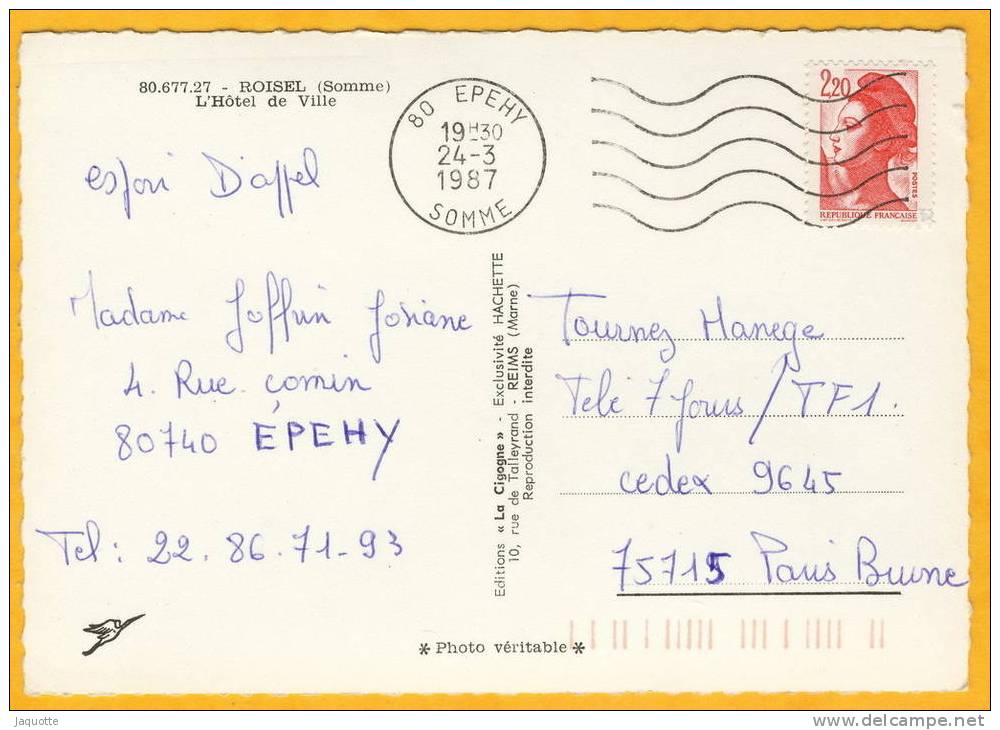 80.677.27 - ROISEL (Somme)
L'Hôtel de Ville
80 EPEHY
19H30
24-3
1987
SOMME
2,20
POSTES
REPUBLIQUE FRANÇAISE
espoir D'appel
Madame Joffrin Josiane
4. Rue comin
80740 EPEHY
Tel: 22.86.71-93
Editions « La Cigogne » - Exclusivité HACHETTE
10, rue de Talleyrand - REIMS (Marne)
Reproduction interdite
Tournez Manege
Télé 7 Jours / TF1.
cedex 9645
75715 Paris Brune
* Photo véritable *
Jaquotte
www.delcampe.net